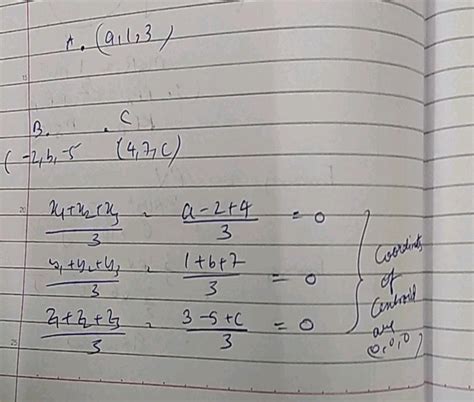 A. (a,1,3)
B. . C
(-2,b,-5 (4,7,C)
x₁+x₂+x₃/3 - a-2+4/3 = 0
y₁+y₂+y₃/3 - 1+b+7/3 = 0
z₁+z₂+z₃/3 - 3-5+C/3 = 0
Coordinates
of
Centroid
are
(0,0,0)